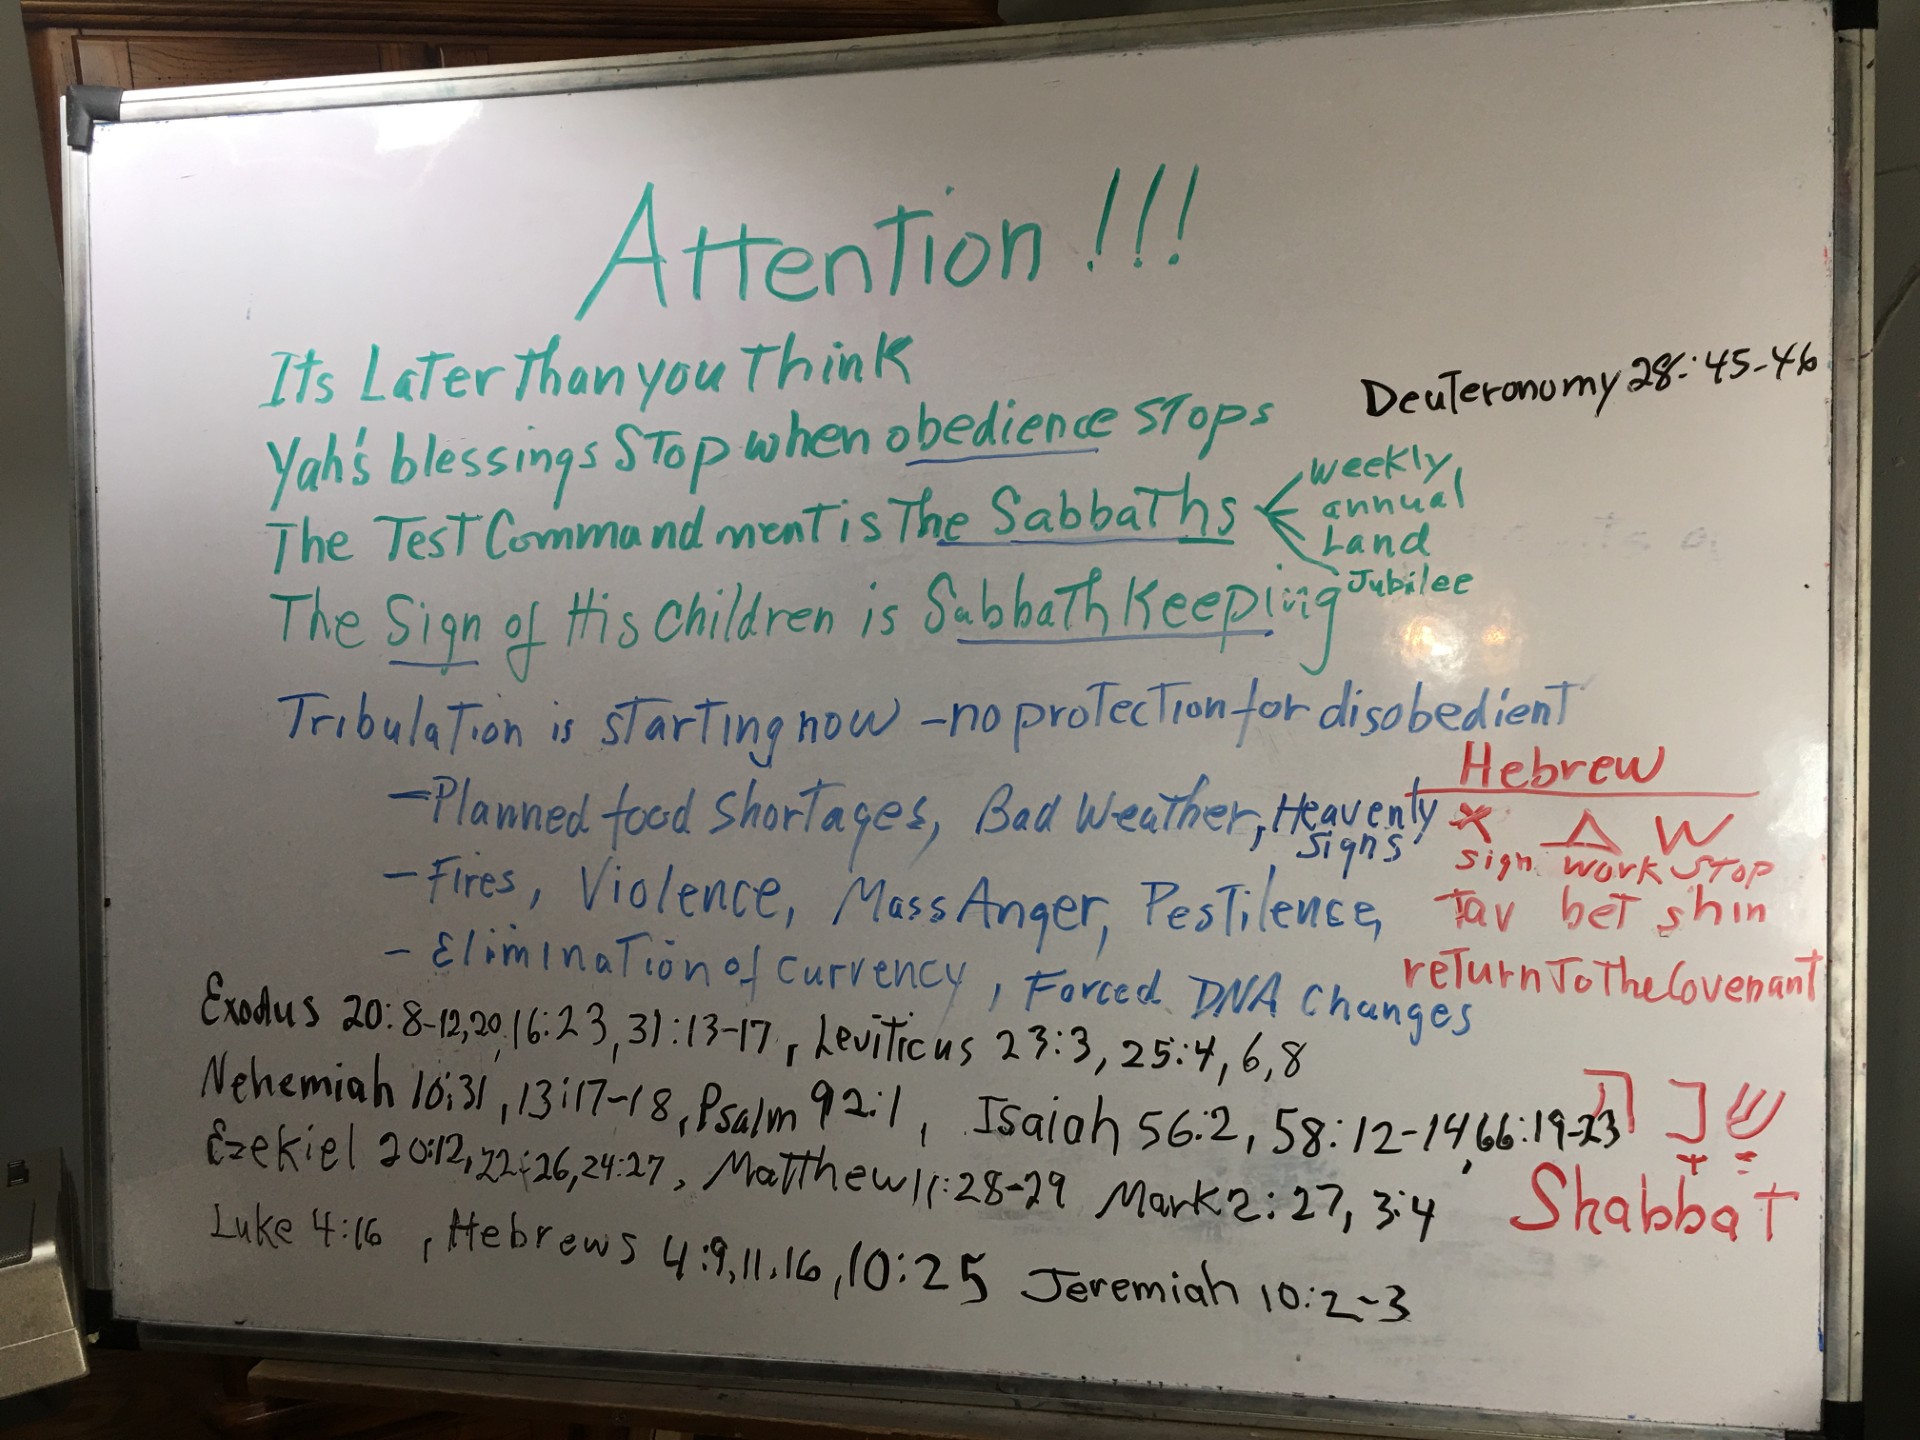 Attention!!!
Its Later Than you Think
Deuteronomy 28:45-46
Yah's blessings Stop when obedience stops
The Test Commandment is The Sabbaths
weekly,
annual
Land
Jubilee
The Sign of His Children is Sabbath Keeping
Tribulation is starting now - no protection for disobedient
- Planned food Shortages, Bad Weather, Heavenly Signs
- Fires, Violence, Mass Anger, Pestilence,
- Elimination of currency, Forced DNA Changes
Hebrew
sign work stop
Tav bet shin
return To The Covenant
Exodus 20:8-12,20,16:23,31:13-17, Leviticus 23:3, 25:4,6,8
Nehemiah 10:31, 13:17-18, Psalm 92:1, Isaiah 56:2, 58:12-14, 66:19-23
Ezekiel 20:12, 22:26, 24:27, Matthew 11:28-29 Mark 2:27, 3:4
ת ב ש
Shabbat
Luke 4:16, Hebrews 4:9,11,16, 10:25 Jeremiah 10:2-3